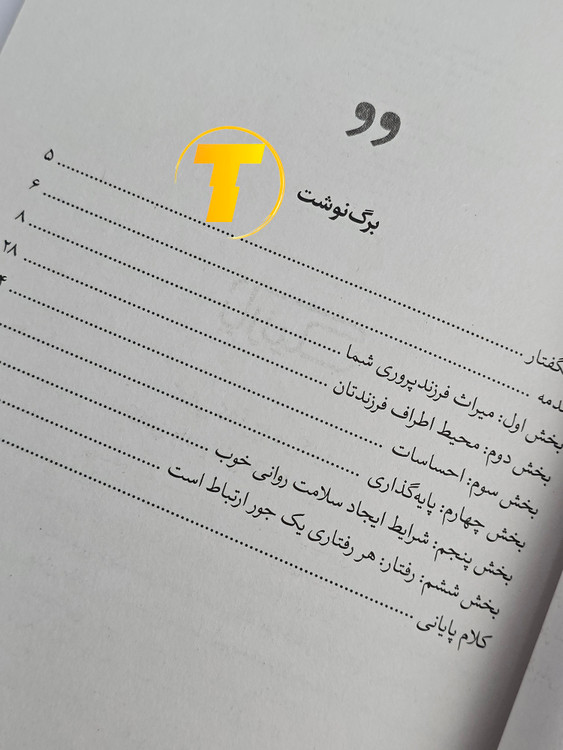 ”
برگ‌نوشت
T
گفتار ........ ۵
دمه ........ ۶
بخش اول: میراث فرزندپروری شما ........ ۸
بخش دوم: محیط اطراف فرزندتان ........ ۲۸
بخش سوم: احساسات ........
بخش چهارم: پایه‌گذاری ........
بخش پنجم: شرایط ایجاد سلامت روانی خوب ........
بخش ششم: رفتار: هر رفتاری یک جور ارتباط است ........
کلام پایانی ........